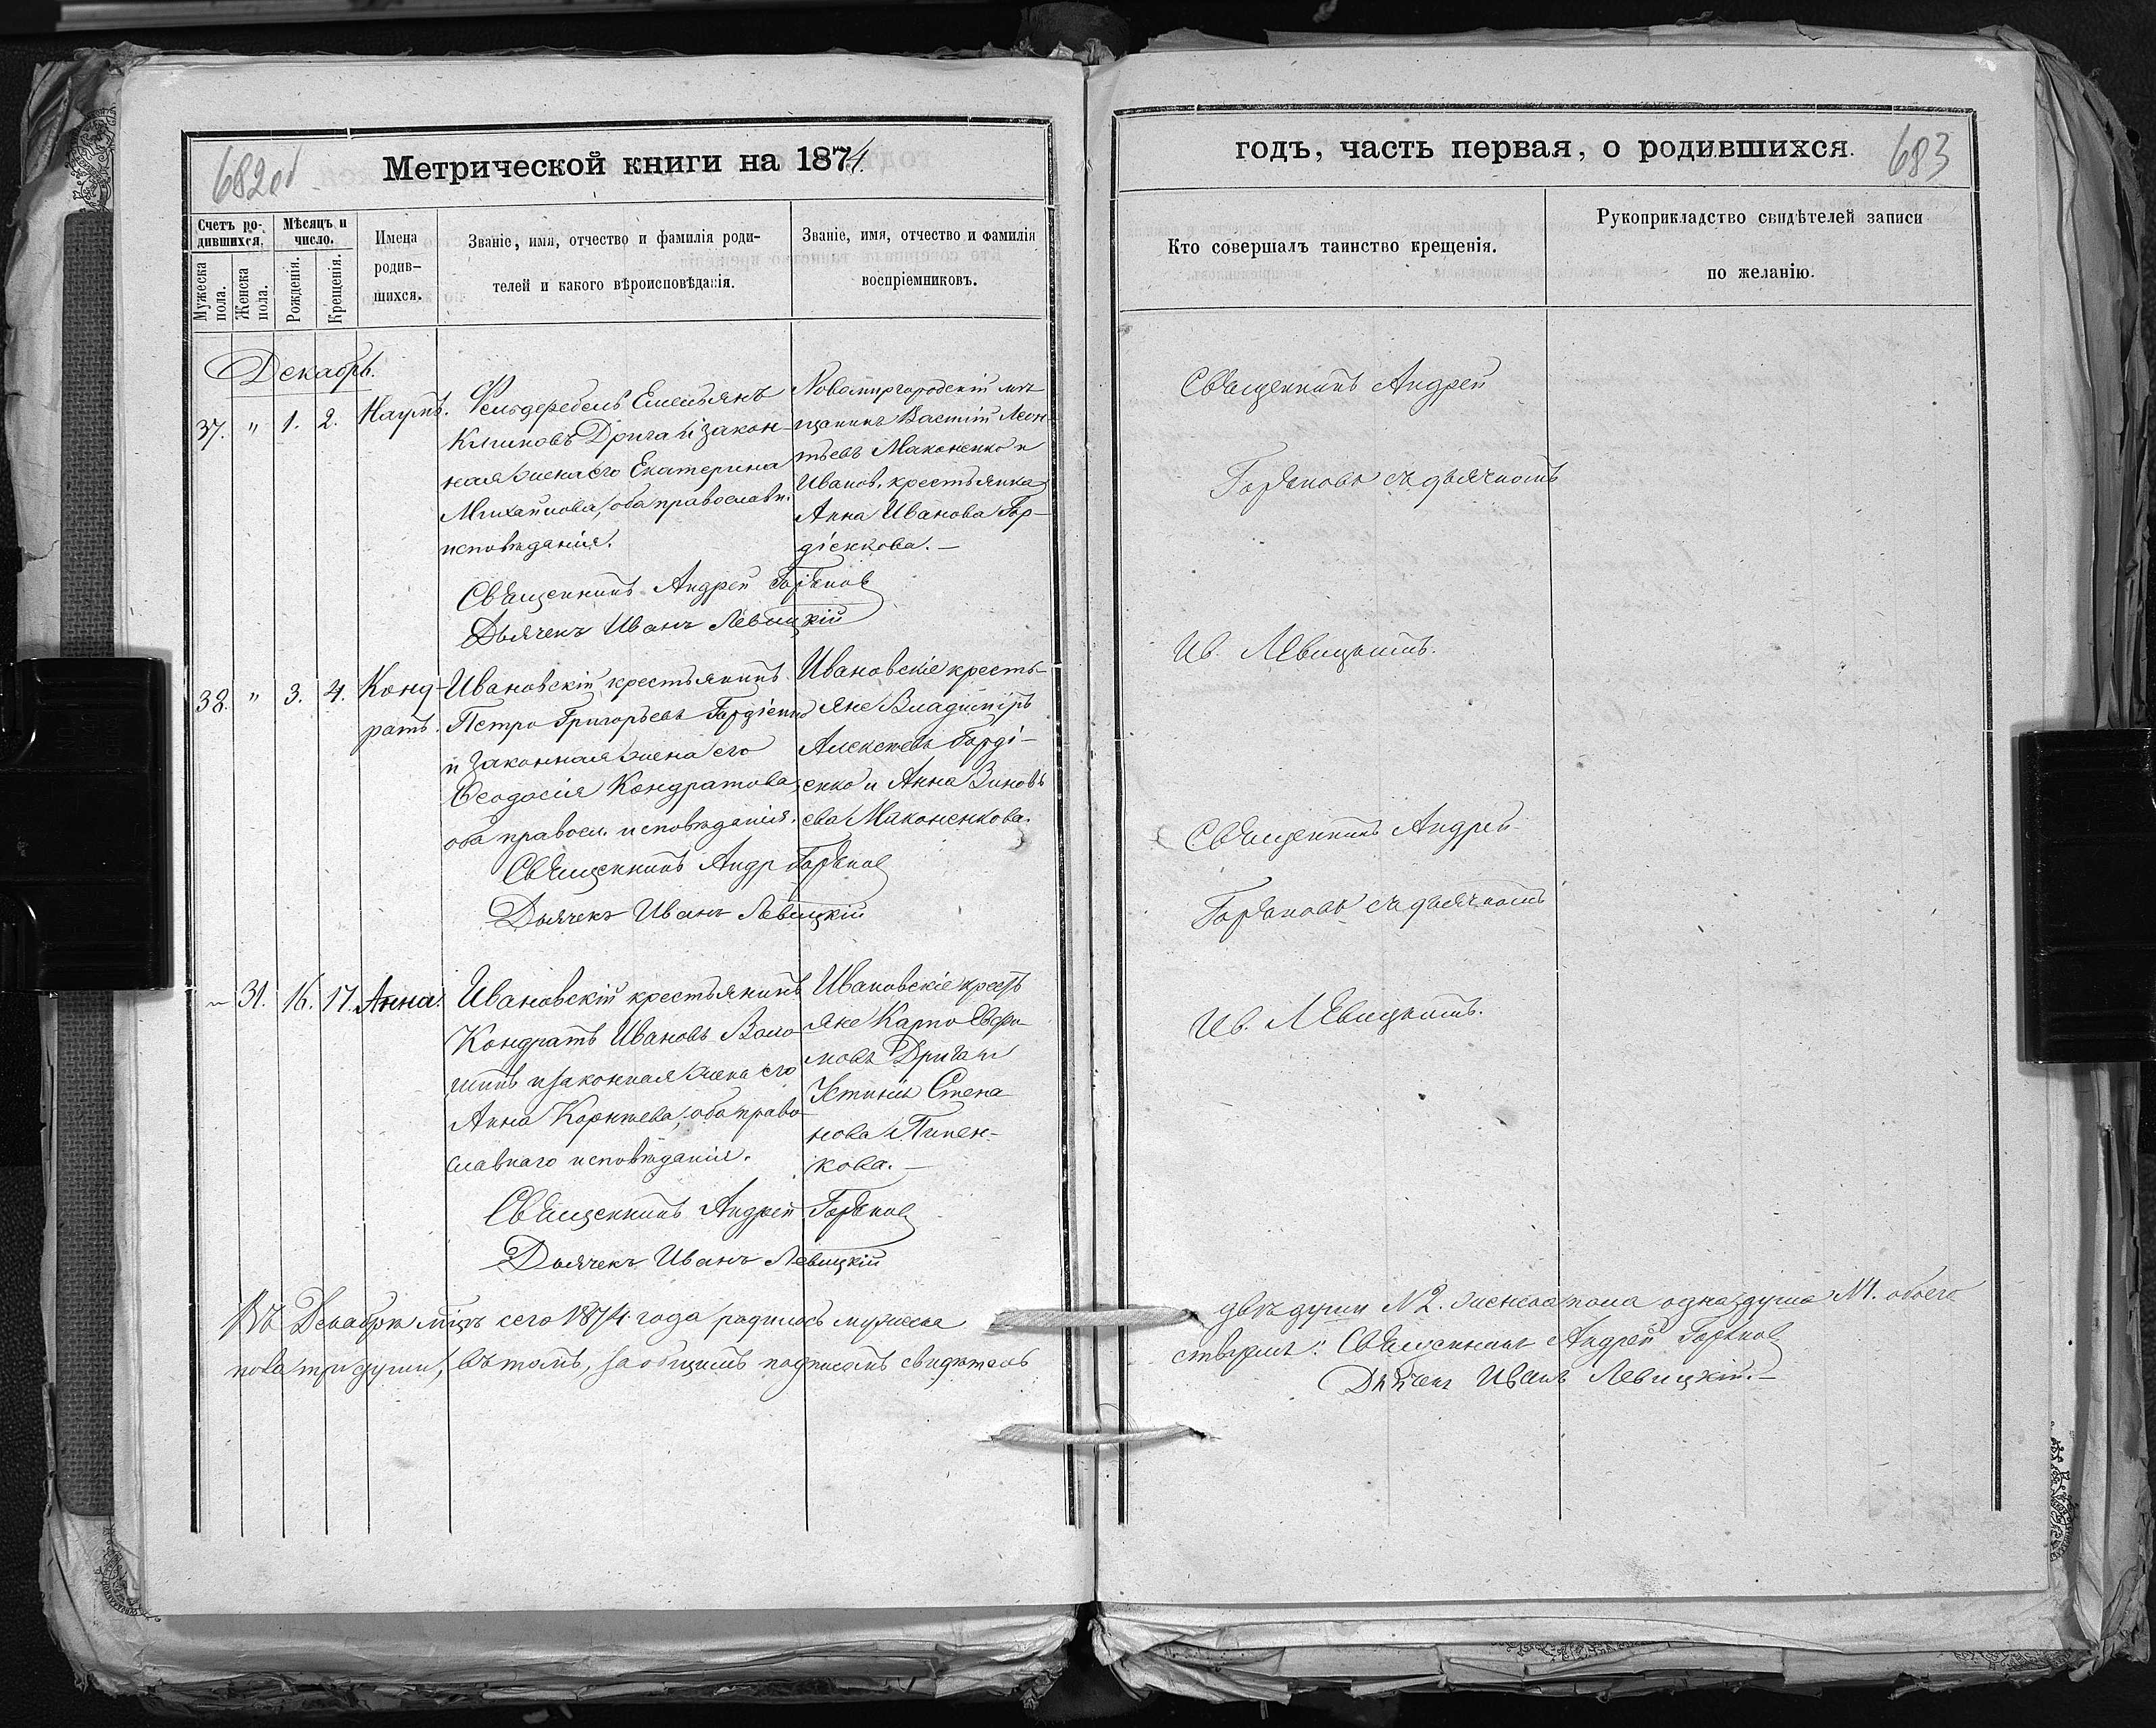 682об
Метрической книги на 1874.
Счетъ ро-
дившихся.
Мѣсяцъ и
число.
Мужеска
пола.
Женска
пола.
Рожденія.
Крещенія.
Имена
родив-
шихся.
Званіе, имя, отчество и фамилія роди-
телей и какого вѣроисповѣданія.
Званіе, имя, отчество и фамилія
воспріемниковъ.
Декабрь.
37. " 1. 2. Наумъ.
Фельдфебель Емельянъ
Климовъ Дрига и закон-
ная жена его Екатерина
Михайлова, оба православн.
исповѣданія.
Новомиргородскій мѣ-
щанинъ Василій Леон-
тьевъ Маконенко и
Иванов. крестьянка
Анна Иванова Гор-
діенкова. —
Священникъ Андрей
Дьячекъ Иванъ Левицкій
38. " 3. 4. Конд-
ратъ.
Ивановскій крестьянинъ
Петро Григорьевъ Гордіенко
и законная жена его
Ѳеодосія Кондратова,
оба правосл. исповѣданія.
Ивановскіе кресть-
яне Владиміръ
Алексѣевъ Горді-
енко и Анна Зиновь
ева Маконенкова.
Священникъ Андр
Дьячекъ Иванъ Левицкій
" 31. 16. 17. Анна.
Ивановскій крестьянинъ
Кондратъ Ивановъ Воло-
и законная жена его
Анна Корнѣева, оба право-
славнаго исповѣданія.
Ивановскіе кресть
яне Карпо
Дрига и
Устинія Степа
нова
кова. —
Священникъ Андрей
Дьячекъ Иванъ Левицкій
Въ Декабрѣ мѣцѣ сего 1874 года родилось мужеска
пола три души, въ томъ, за общимъ подписомъ свидѣтель
годъ, часть первая, о родившихся.
683
Кто совершалъ таинство крещенія.
Рукоприкладство свидѣтелей записи
по желанію.
Священникъ Андрей
съ дьячкомъ
Ив. Левицкимъ.
Священникъ Андрей
съ дьячкомъ
Ив. Левицкимъ.
двѣ души N 2. женска пола одна душа N 1. обоего
ствуемъ: Священникъ Андрей
Дьячекъ Иванъ Левицкій. —